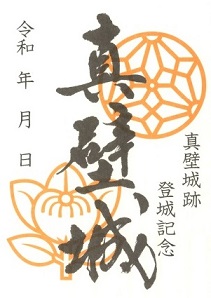 真壁城跡
登城記念
真壁城
令和　年　月　日